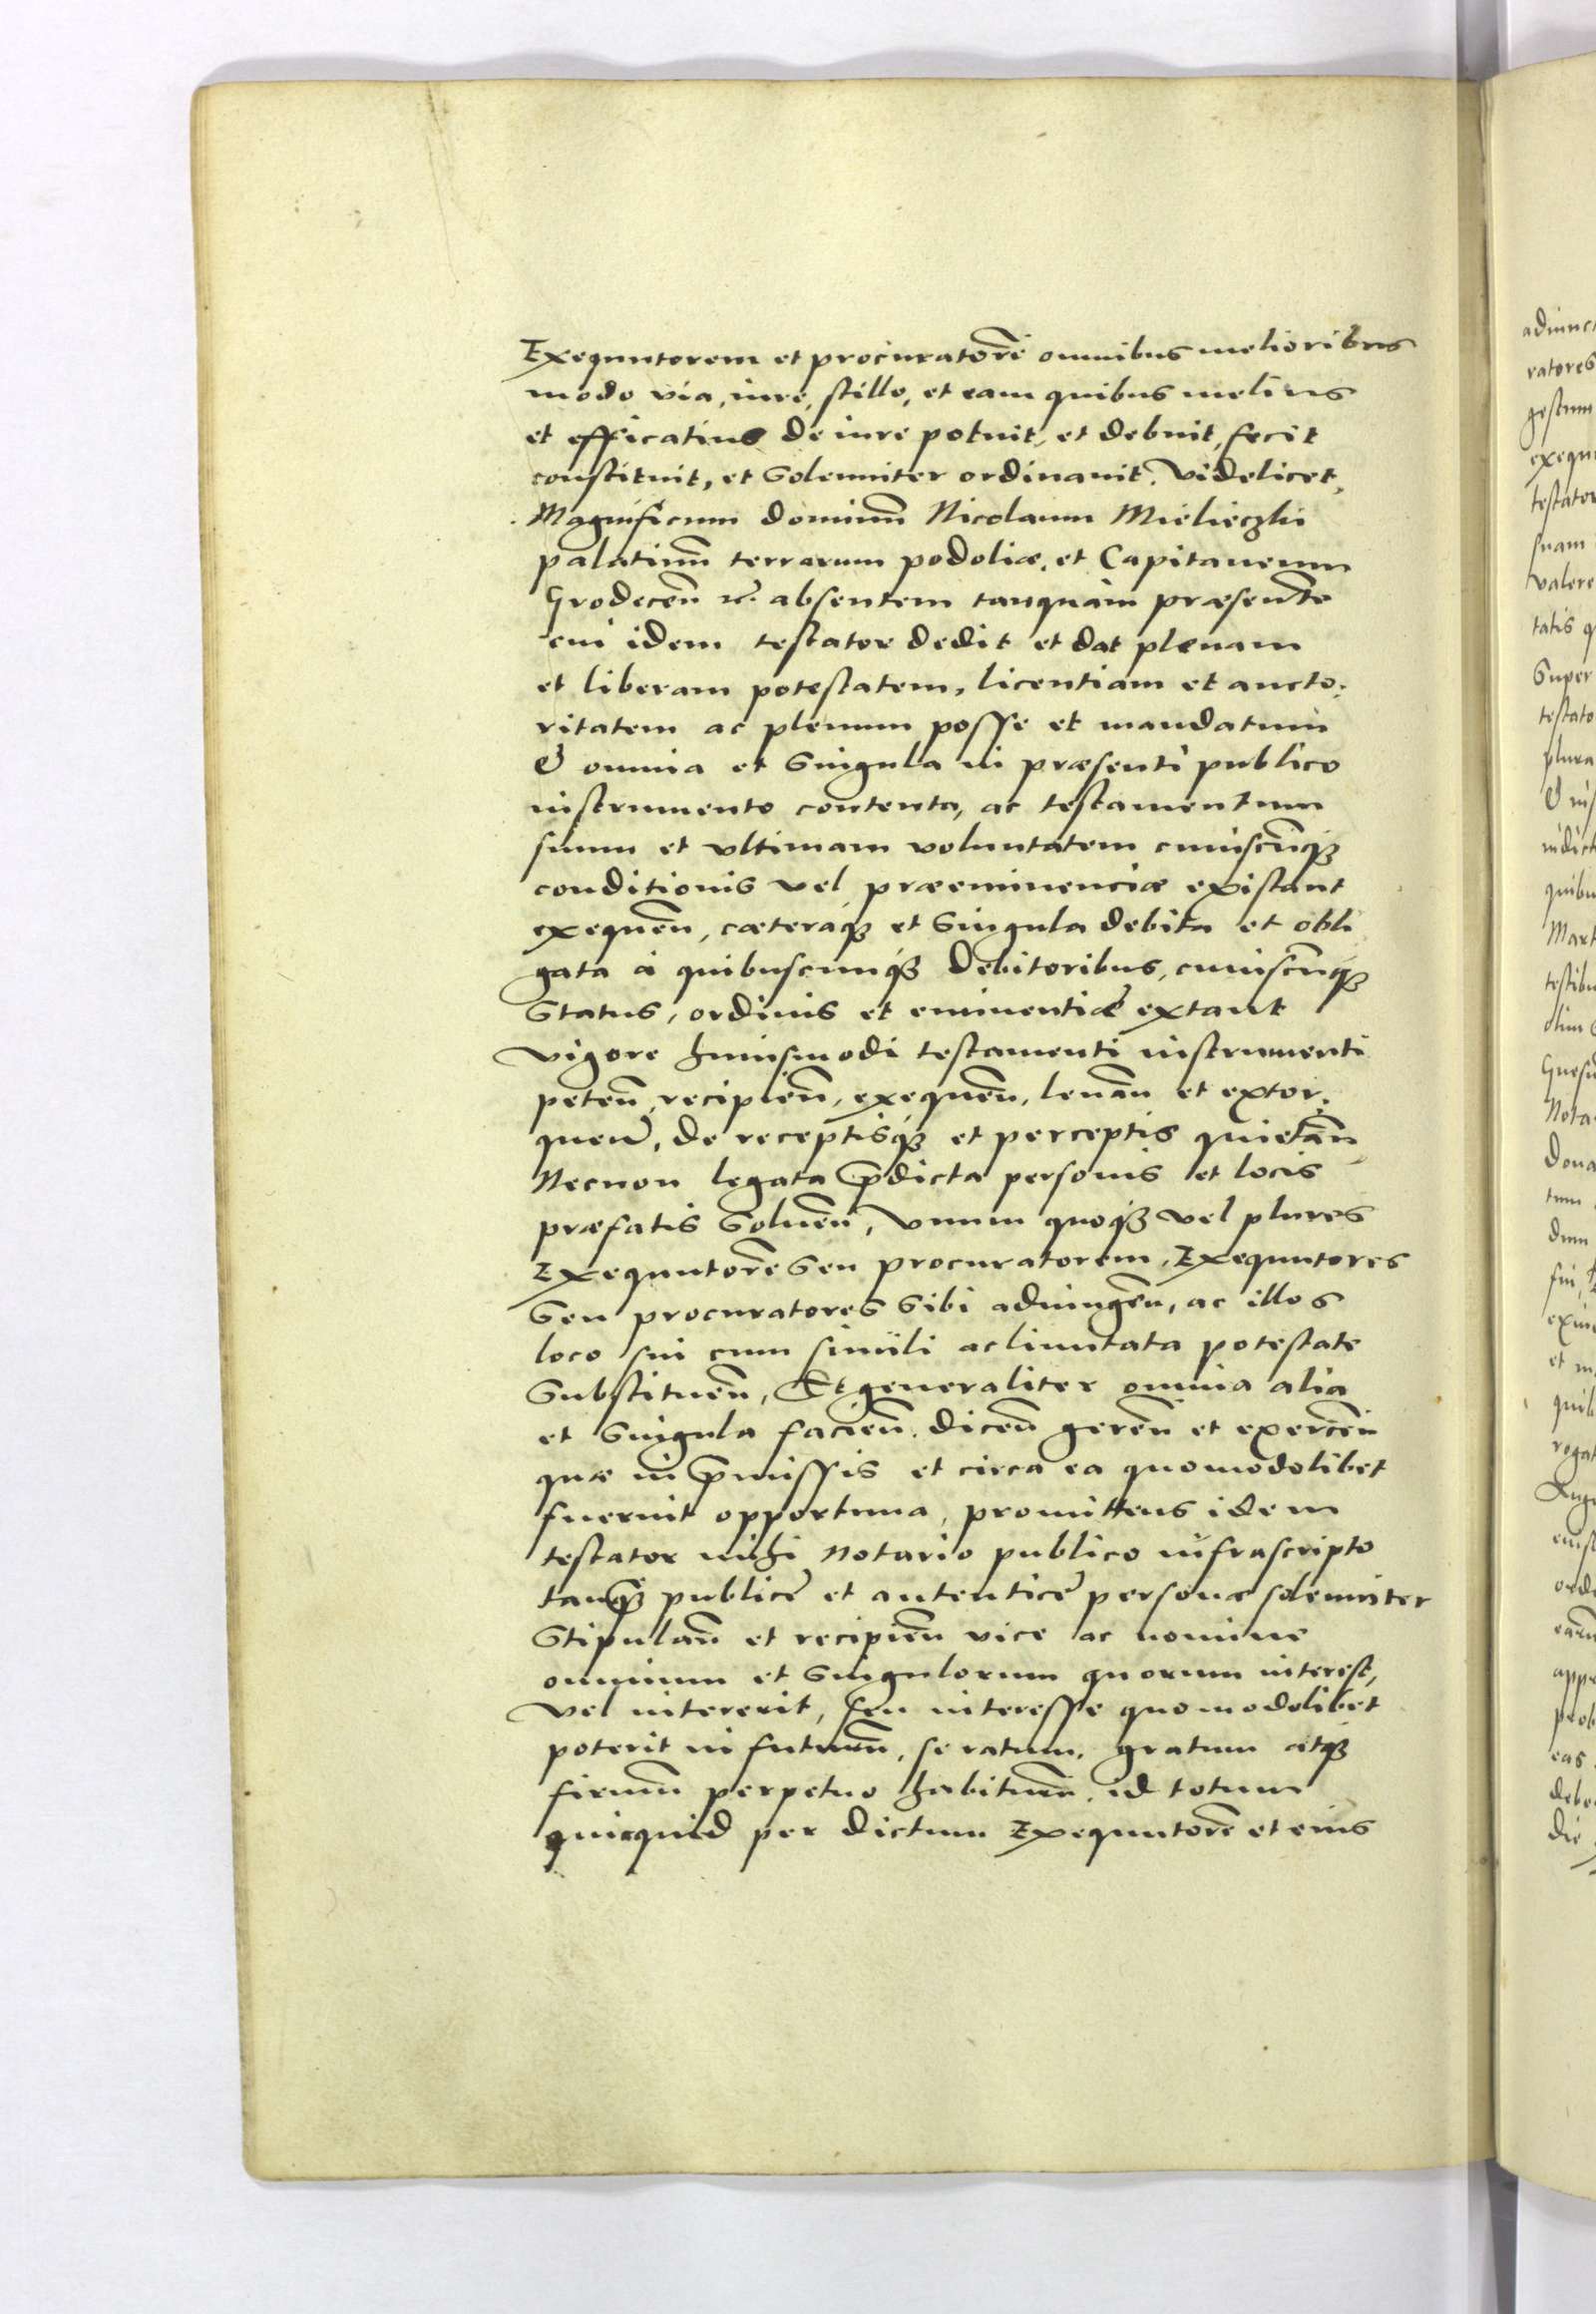 Exequutorem et procuratorē omnibus melioribus
modo via, iure, stillo, et eam quibus melius
et efficatius de iure potuit, et debuit, fecit
constituit, et Solenniter ordinauit. Videlicet,
Magnificum dominū Nicolaum Mielieczki
palatinū terrarum podoliæ, et Capitaneum
Grodecēn etc. absentem tanquam præsentē
cui idem testator dedit et dat plenam
et liberam potestatem, licentiam et aucto:
ritatem ac plenum posse et mandatum
& omnia et Singula in præsenti publico
instrumento contenta, ac testamentum
suum et vltimam voluntatem cuiuscūqꝫ
conditionis vel præeminenciæ existant
exequēn, cæteraqꝫ et Singula debita et obli
gata à quibuscunqꝫ Debitoribus, cuiuscūqꝫ
Status, ordinis et eminentiæ extant
vigore huiusmodi testamenti instrumenti
petēn, recipiēn, exequēn, leuān et extor.
quēn, de receptisqꝫ et perceptis quietān
Necnon legata p̄dicta personis et locis
præfatis Soluēn, Vnum quoqꝫ vel plures
Exequutorē Seu procuratorem, Exequutores
Seu procuratores Sibi adiungēn, ac illos
loco sui cum simili ac limitata potestate
Substituēn, Et generaliter omnia alia
et Singula faciēn. dicēn gerēn et exercēn
quæ in p̄missis et circa ea quomodolibet
fuerint opportuna, promittens idem
testator mihi Notario publico infrascripto
tanq̄ꝫ publicę et autenticę personæ solenniter
Stipulān et recipiēn vice ac nomine
omnium et Singulorum quorum interest,
vel intererit, seu interesse quomodolibet
poterit in futurū, se ratum, gratum atqꝫ
firmū perpetuo habiturū, id totum
quicquid per dictum Exequutorē et eius
adiunc
ratores
gestum
exequ
testator
suam
valere
tatis q
Super
testato
plura
quibu
testibu
olim
Nota
Dona
tum
dum
et
quib
rogat
appe
prob
eas
debe
die